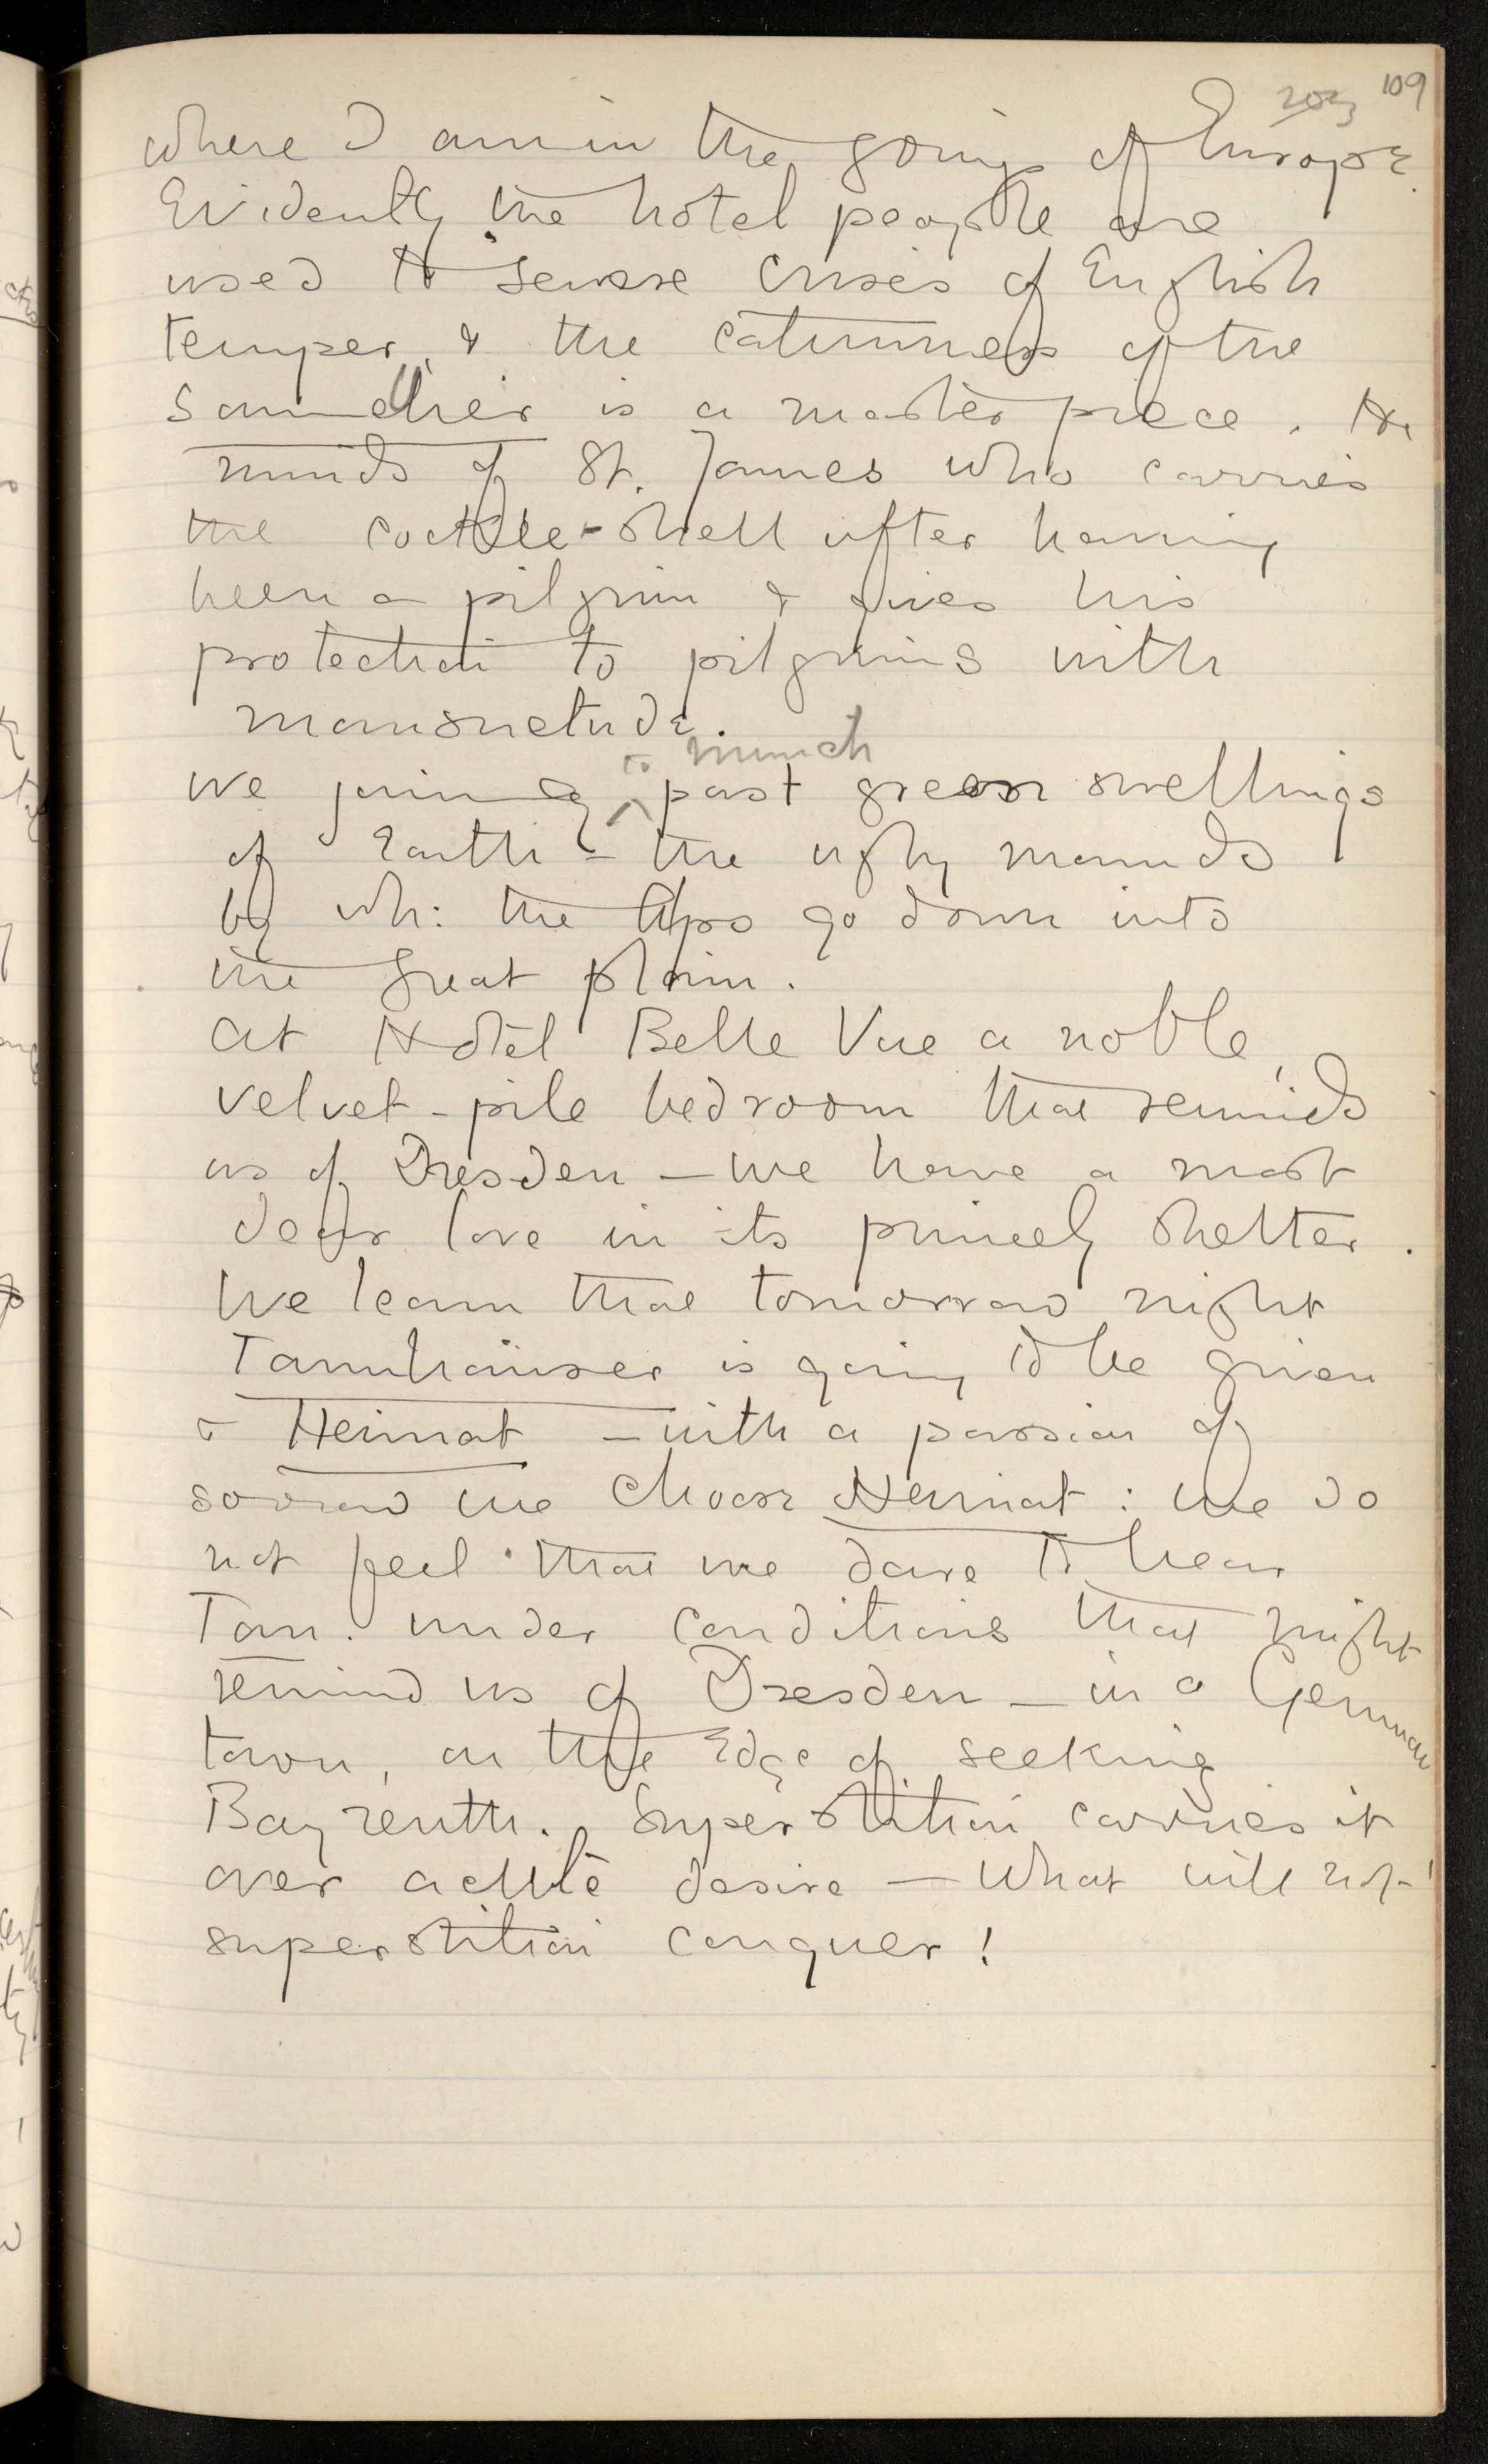 109
where I am in the going of Europe.
Evidently the hotel people are
used to severe crises of English
temper, & the calmness of the
is a masterpiece. He
minds of St. James who carries
the cockle-shell after having
been a pilgrim & gives his
protection to pilgrims with
mansuetude.
to Munich
We journey past green swellings
of Earth – the ugly mounds
by wh: the Alps go down into
the great plain.
At Hôtel Belle Vue a noble,
velvet-pile bedroom that reminds
us of Dresden – we have a most
dear love in its princely shelter.
We learn that tomorrow night
Tannhäuser is going to be given
& Heimat – with a passion of
sorrow we choose Heimat: we do
not feel that we dare to hear
Tan. under conditions that might
remind us of Dresden – in a German
town, on the Edge of seeking
Bayreuth. Superstition carries it
over acute desire – What will not
superstition conquer!